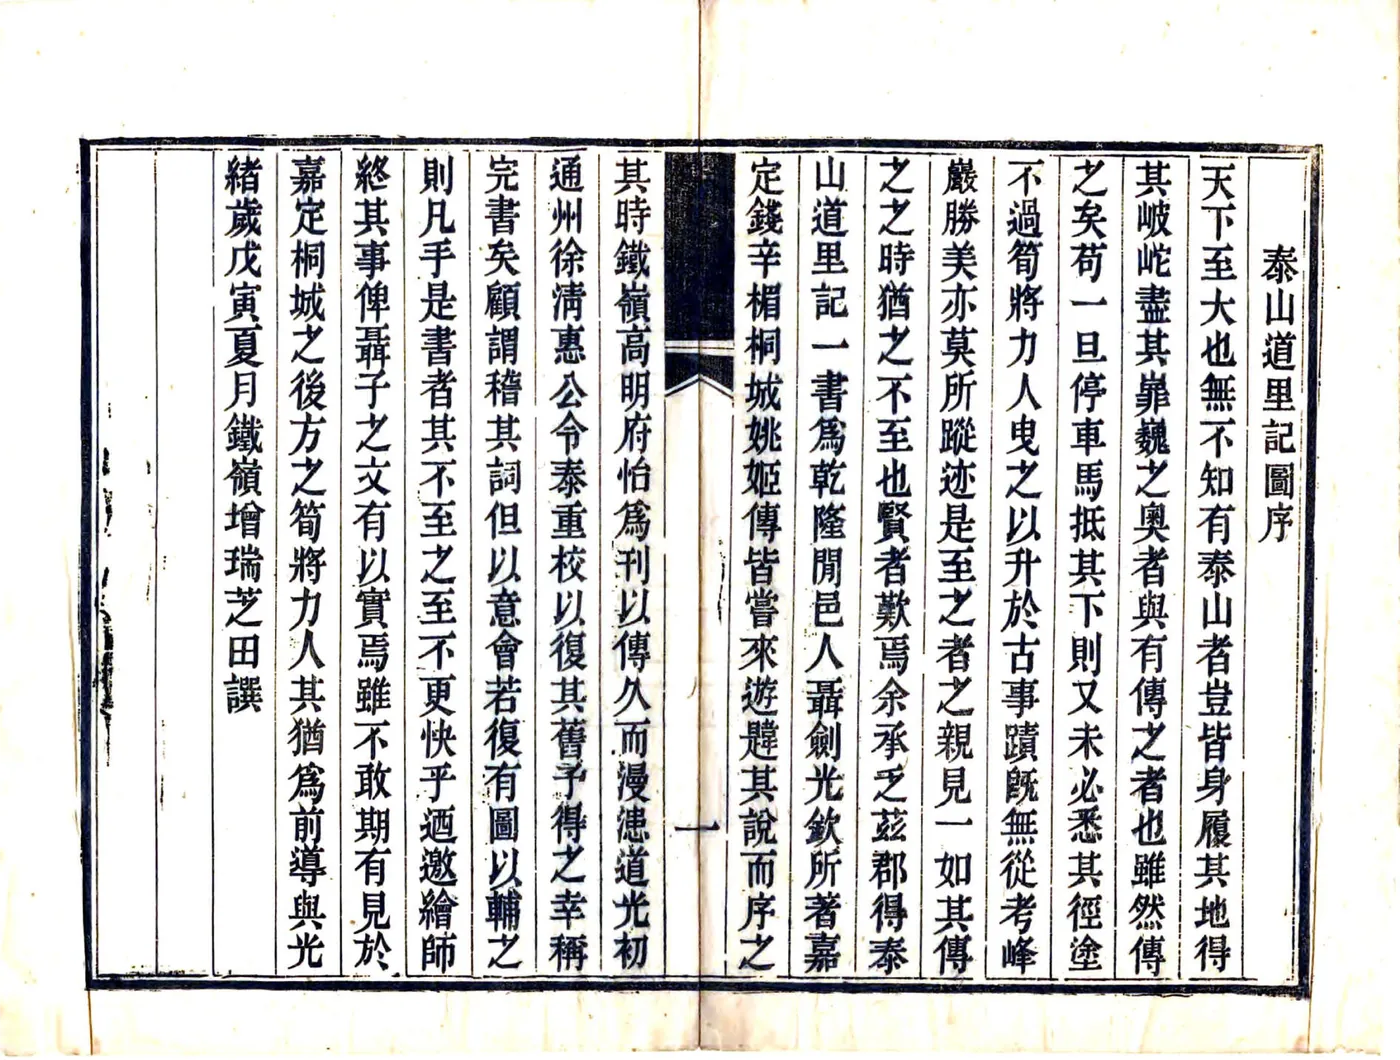 泰山道里記圖序
天下至大也無不知有泰山者豈皆身履其地得
其岐岮盡其嶵巍之奧者與有傳之者也雖然傳
之矣苟一旦停車馬抵其下則又未必悉其徑塗
不過筍將力人曳之以升於古事蹟旣無從考峰
巖勝美亦莫所蹤迹是至之者之親見一如其傳
之之時猶之不至也賢者歎焉余承乏茲郡得泰
山道里記一書爲乾隆閒邑人聶劍光欽所著嘉
定錢辛楣桐城姚姬傳皆嘗來遊韙其說而序之
一
其時鐵嶺高明府怡爲刊以傳久而漫漶道光初
通州徐淸惠公令泰重校以復其舊予得之幸稱
完書矣顧謂稽其詞但以意會若復有圖以輔之
則凡手是書者其不至之至不更快乎迺邀繪師
終其事俾聶子之文有以實焉雖不敢期有見於
嘉定桐城之後方之筍將力人其猶爲前導與光
緖歲戊寅夏月鐵嶺增瑞芝田譔